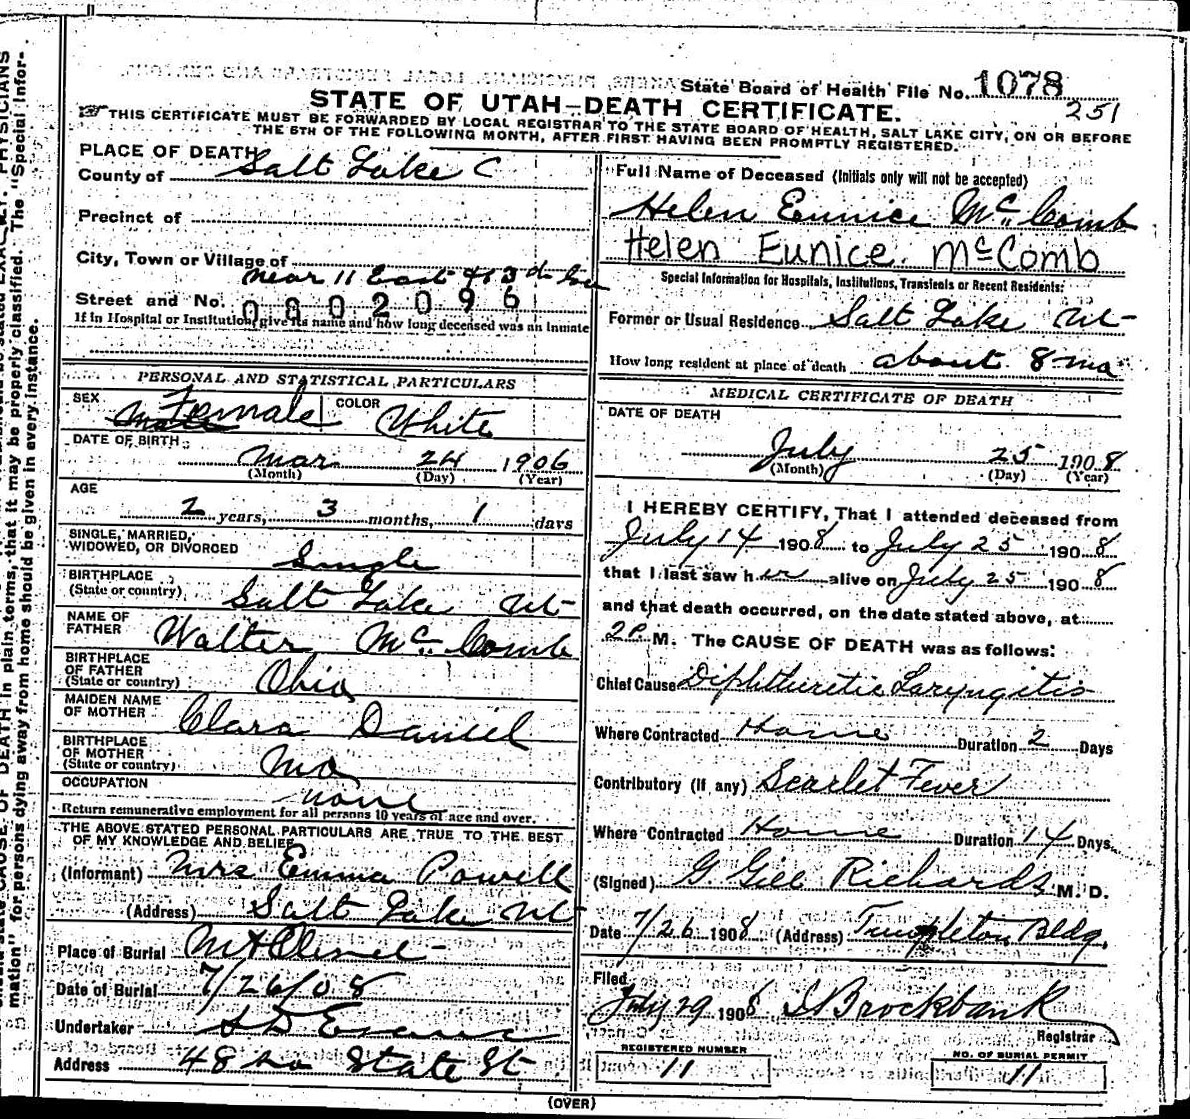 State Board of Health File No. 1078
251
STATE OF UTAH—DEATH CERTIFICATE.
THIS CERTIFICATE MUST BE FORWARDED BY LOCAL REGISTRAR TO THE STATE BOARD OF HEALTH, SALT LAKE CITY, ON OR BEFORE
THE 5TH OF THE FOLLOWING MONTH, AFTER FIRST HAVING BEEN PROMPTLY REGISTERED.
PLACE OF DEATH
County of Salt Lake C
Precinct of
City, Town or Village of
near 11 East & 3d So
Street and No. 0802096
If in Hospital or Institution, give its name and how long deceased was an inmate
PERSONAL AND STATISTICAL PARTICULARS
SEX Male Female COLOR White
DATE OF BIRTH
Mar 24 1906
(Month) (Day) (Year)
AGE
2 years, 3 months, 1 days
SINGLE, MARRIED,
WIDOWED, OR DIVORCED Single
BIRTHPLACE
(State or country) Salt Lake Ut
NAME OF
FATHER Walter McComb
BIRTHPLACE
OF FATHER
(State or country) Ohio
MAIDEN NAME
OF MOTHER Clara Daniel
BIRTHPLACE
OF MOTHER
(State or country) Mo
OCCUPATION none
Return remunerative employment for all persons 10 years of age and over.
THE ABOVE STATED PERSONAL PARTICULARS ARE TRUE TO THE BEST
OF MY KNOWLEDGE AND BELIEF
(Informant) Mrs Emma Powell
(Address) Salt Lake Ut
Place of Burial Mt Olivet
Date of Burial 7/26/08
Undertaker S D Evans
Address 48 So State St
Full Name of Deceased (Initials only will not be accepted)
Helen Eunice McComb
Helen Eunice. McComb
Special Information for Hospitals, Institutions, Transients or Recent Residents:
Former or Usual Residence Salt Lake Ut
How long resident at place of death about 8 mo
MEDICAL CERTIFICATE OF DEATH
DATE OF DEATH
July 25 1908
(Month) (Day) (Year)
I HEREBY CERTIFY, That I attended deceased from
July 14 1908 to July 25 1908
that I last saw her alive on July 25 1908
and that death occurred, on the date stated above, at
2 P. M. The CAUSE OF DEATH was as follows:
Chief Cause Diphtheretic Laryngitis
Where Contracted Home Duration 2 Days
Contributory (if any) Scarlet Fever
Where Contracted Home Duration 14 Days
(Signed) G. Gill Richards M. D.
Date 7/26 1908 (Address) Templeton Bldg.
Filed
July 29 1908 Brockbank
Registrar
REGISTERED NUMBER
11
NO. OF BURIAL PERMIT
11
(OVER)
mation" for persons dying away from home should be given in every instance.